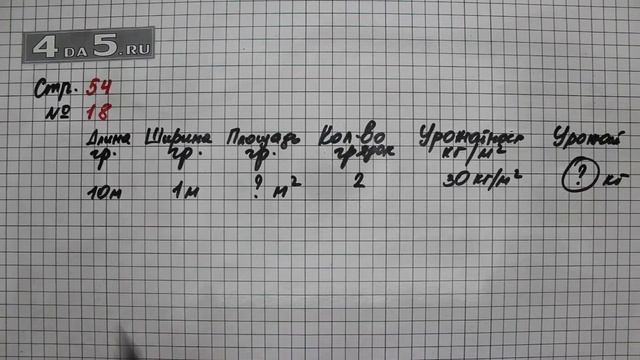 4DA5.RU
Стр. 54
№ 18
Длина Ширина Площадь Кол-во Урожайност Урожай
гр. гр. гр. грядок кг/м²
10м 1м ? м² 2 30 кг/м² ? кг